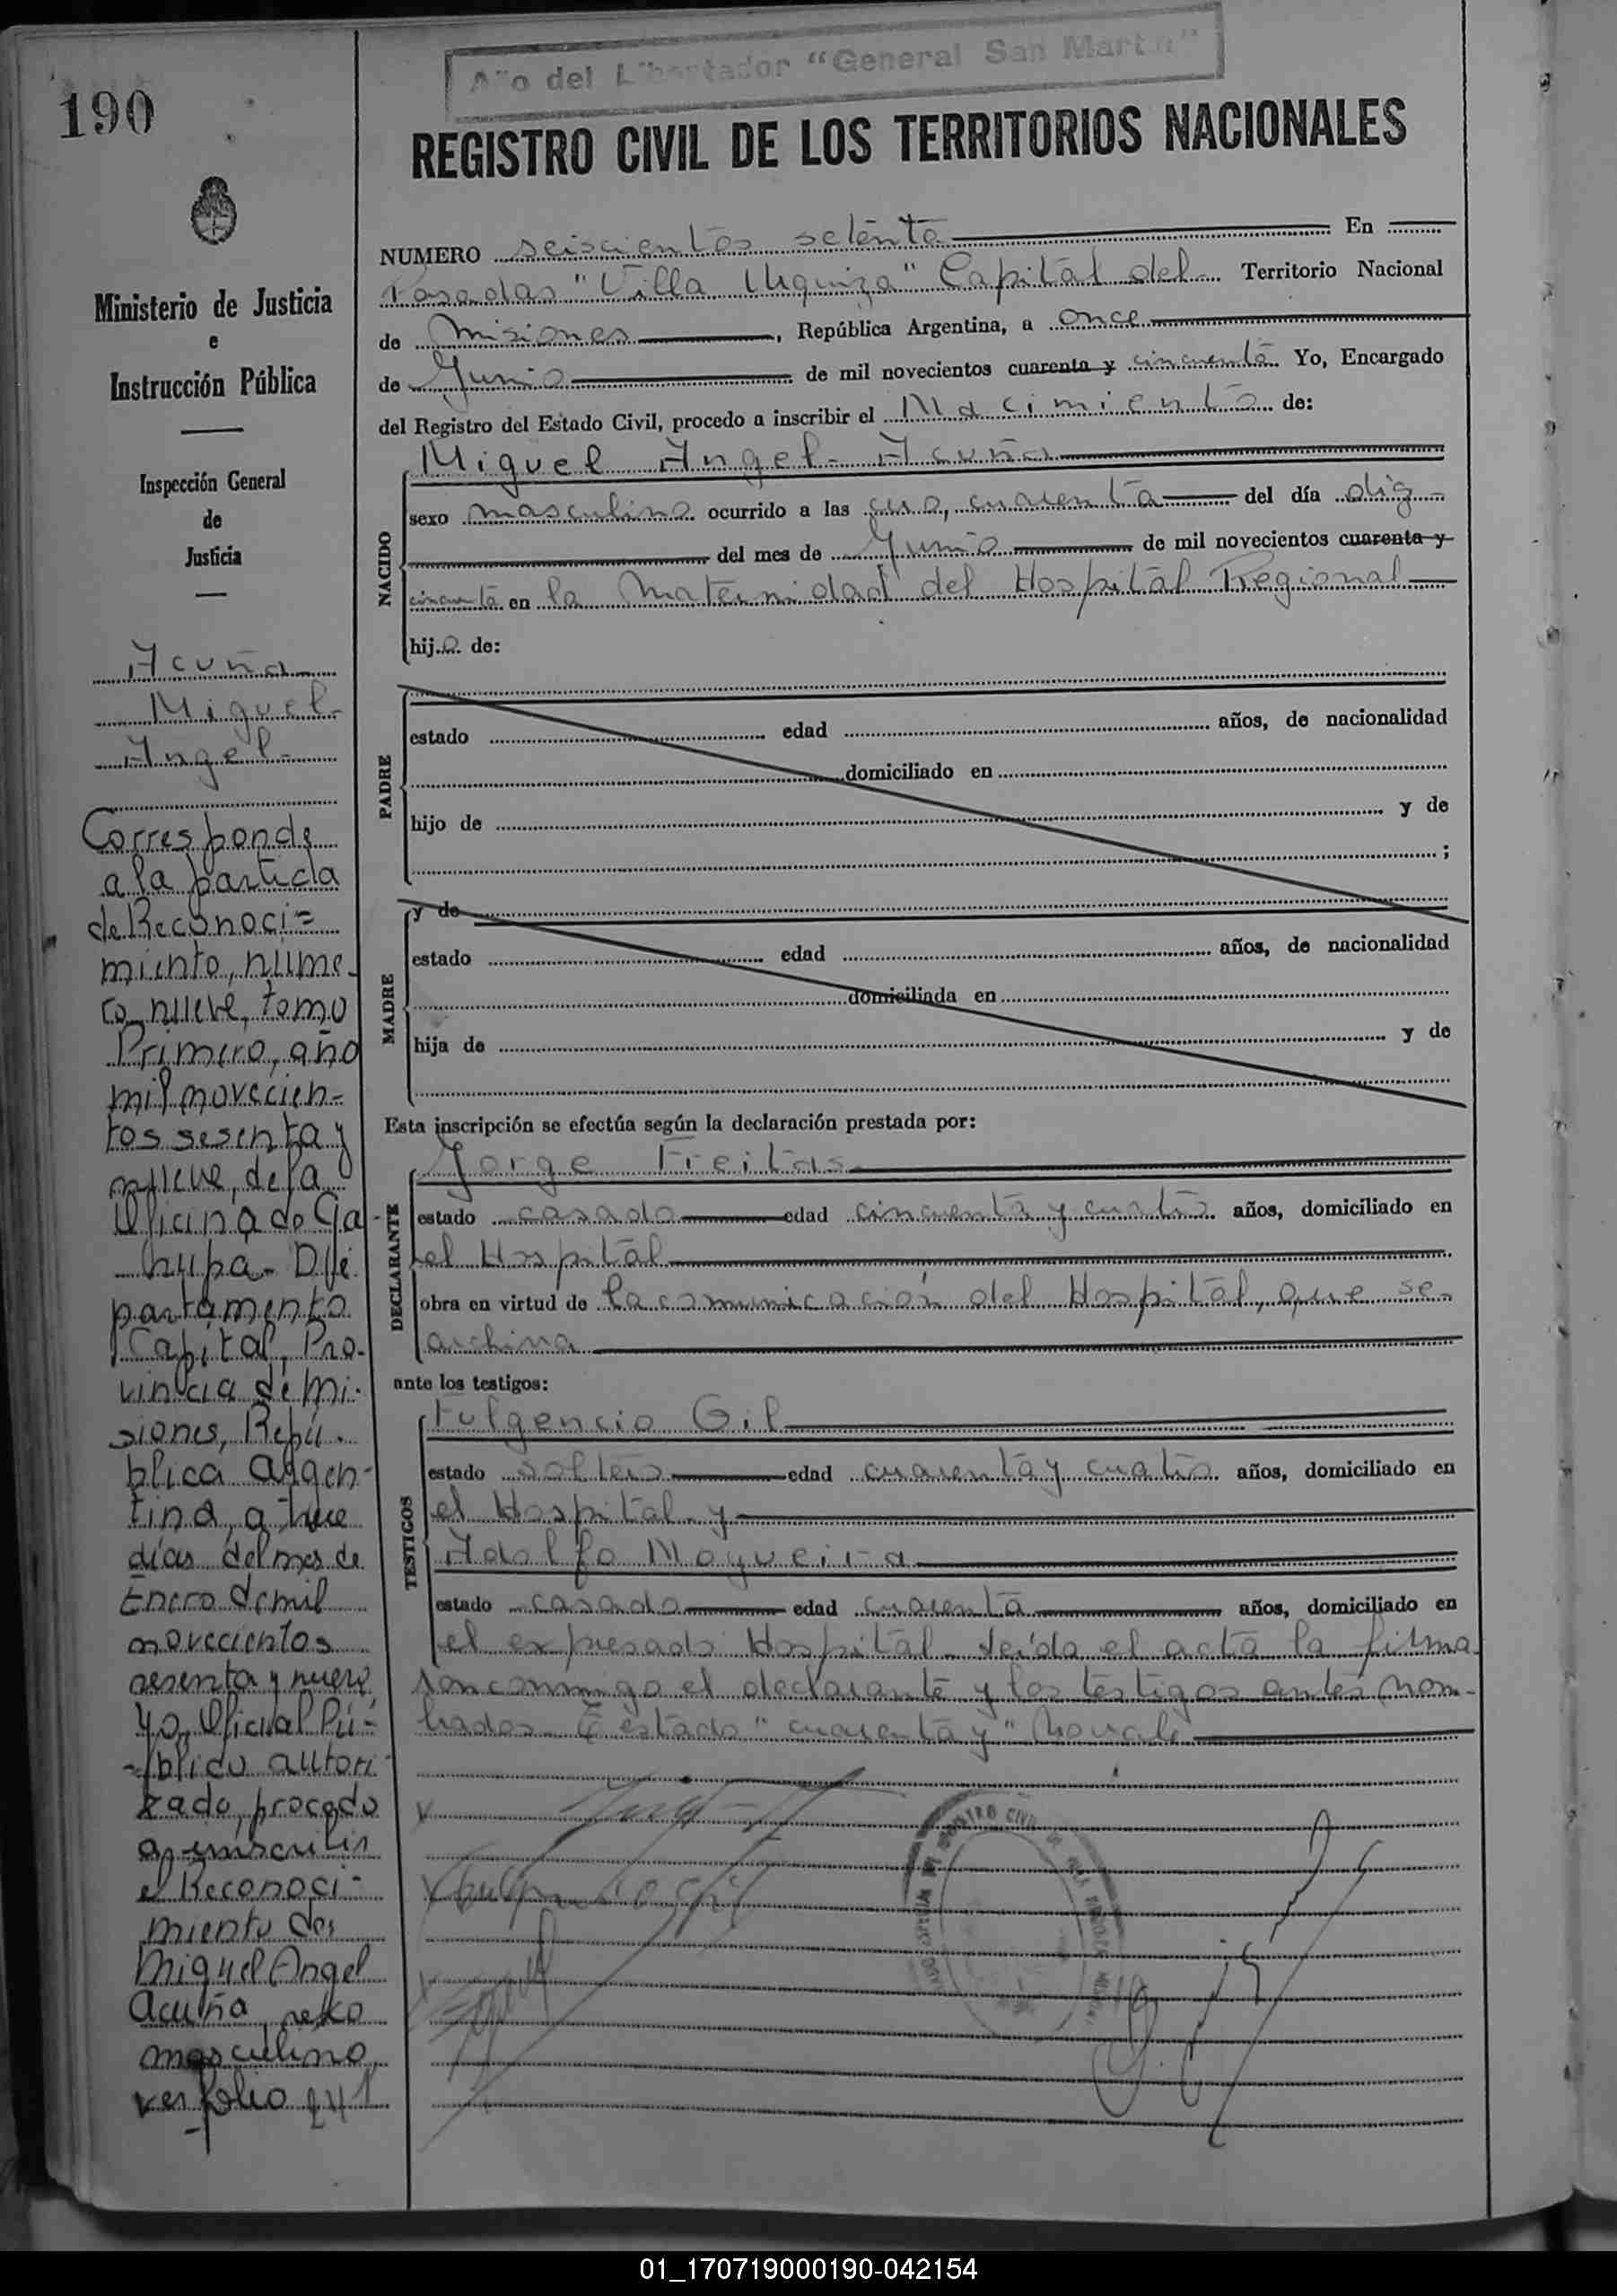 190
Año del Libertador "General San Martin"
REGISTRO CIVIL DE LOS TERRITORIOS NACIONALES
Ministerio de Justicia
e
Instrucción Pública
Inspección General
de
Justicia
Acuña
Miguel
Angel
Corresponde
a la partida
de Reconoci=
miento, nume-
ro nueve, tomo
Primero, año
mil novecien-
tos sesenta y
nueve, de la
Oficina de Ga-
rupa- De
partamento
Capital, Pro-
vincia de Mi-
siones, Repú-
blica Argen-
tina, a trece
días del mes de
Enero de mil
novecientos
sesenta y nueve,
Yo, Oficial Pú-
blico autori-
zado, procedo
a inscribir
el Reconoci-
miento de:
Miguel Angel
Acuña, sexo
masculino,
ver folio 241
NUMERO seiscientos setenta En
Posadas "Villa Urquiza" Capital del Territorio Nacional
de Misiones, República Argentina, a once
de Junio de mil novecientos cuarenta y cincuenta Yo, Encargado
del Registro del Estado Civil, procedo a inscribir el Nacimiento de:
NACIDO
Miguel Angel Acuña
sexo masculino ocurrido a las cero, cuarenta del día diez
del mes de Junio de mil novecientos cuarenta y
cincuenta en la Maternidad del Hospital Regional
hijo de:
PADRE
estado edad años, de nacionalidad
domiciliado en
hijo de y de
;
MADRE
y de
estado edad años, de nacionalidad
domiciliada en
hija de y de
Esta inscripción se efectúa según la declaración prestada por:
DECLARANTE
Jorge Freitas
estado casado edad cincuenta y cuatro años, domiciliado en
el Hospital
obra en virtud de la comunicación del Hospital, que se
archiva
ante los testigos:
TESTIGOS
Fulgencio Gil
estado soltero edad cuarenta y cuatro años, domiciliado en
el Hospital y
Adolfo Nogueira
estado casado edad cuarenta años, domiciliado en
el expresado Hospital. Leída el acta la firma
ron conmigo el declarante y los testigos antes nom-
brados. E estado "cuarenta y" No vale
Fulgencio Gil
01_170719000190-042154